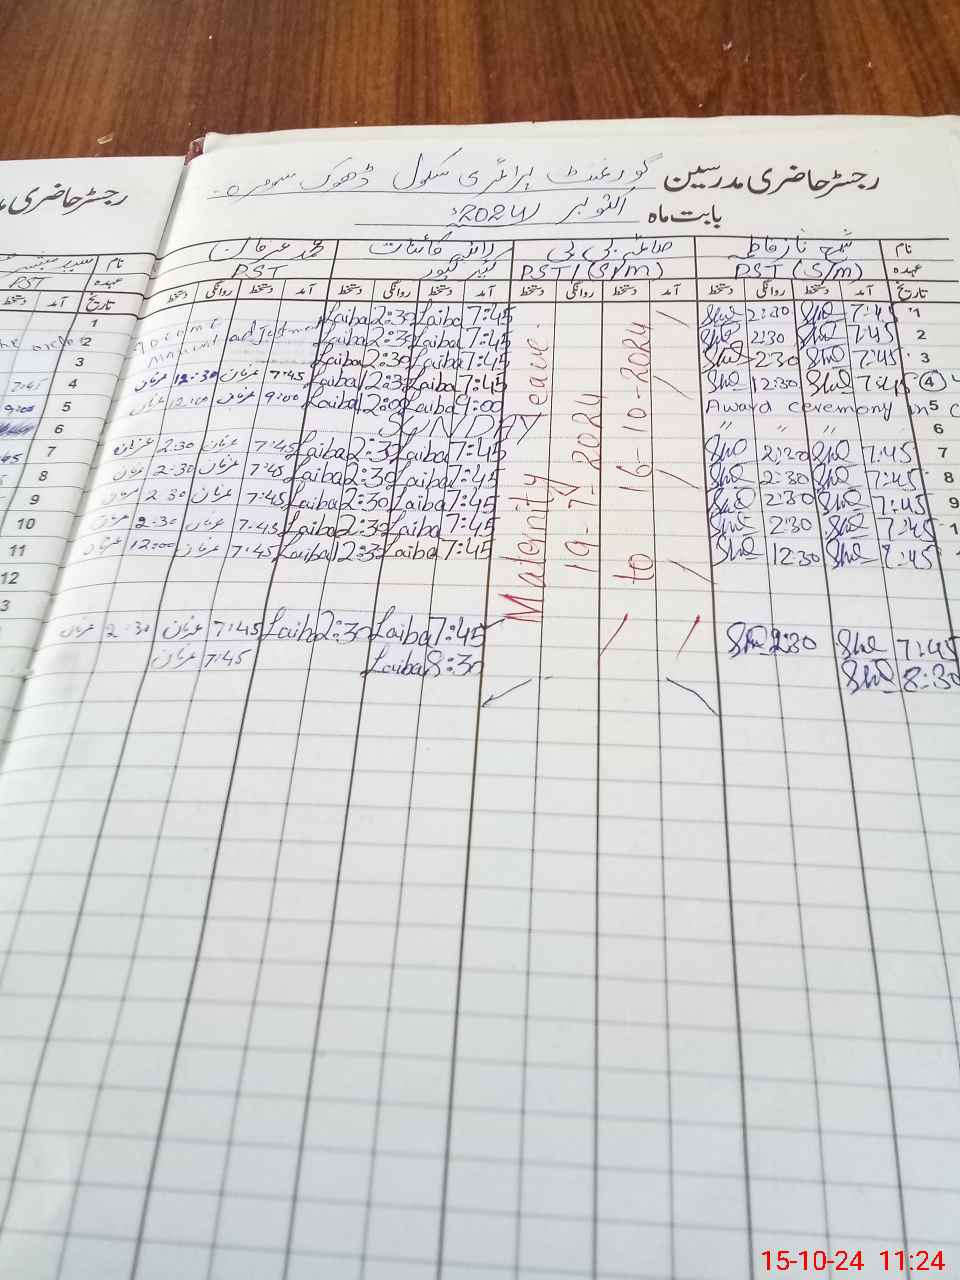 رجسٹر حاضری مدرسین گورنمنٹ پرائمری سکول ڈھوک
رجسٹر حاضری
بابت ماہ اکتوبر 2024ء
نام شمع ناز فاطمہ صائمہ بی بی محمد عرفان
عہدہ PST (S/m) PST (S/m) PST
تاریخ آمد دستخط روانگی دستخط آمد دستخط روانگی دستخط آمد دستخط روانگی دستخط آمد دستخط روانگی دستخط
نام
عہدہ PST
تاریخ آمد دستخط
1 7:45 She 2:30 She 7:45 Laiba 2:30 Laiba
2 7:45 She 2:30 She 7:45 Laiba 2:30 Laiba adjustment
3 7:45 She 2:30 She 7:45 Laiba 2:30 Laiba
4 7:45 She 12:30 She 7:45 Laiba 12:30 Laiba 7:45 عرفان 12:30 عرفان
5 Award ceremony in 9:00 Laiba 2:00 Laiba 9:00 عرفان 12:00 عرفان
6 〃 〃 〃 〃 SUNDAY
7 7:45 She 2:30 She 7:45 Laiba 2:30 Laiba 7:45 عرفان 2:30 عرفان
8 7:45 She 2:30 She 7:45 Laiba 2:30 Laiba 7:45 عرفان 2:30 عرفان
9 7:45 She 2:30 She 7:45 Laiba 2:30 Laiba 7:45 عرفان 2:30 عرفان
7:45 She 2:30 She 7:45 Laiba 2:30 Laiba 7:45 عرفان 2:30 عرفان
7:45 She 12:30 She 7:45 Laiba 12:30 Laiba 7:45 عرفان 12:00 عرفان
7:45 She 2:30 She 7:45 Laiba 2:30 Laiba 7:45 عرفان 2:30 عرفان
8:30 She 8:30 Laiba 7:45 عرفان
Maternity Leave.
19-7-2024
to 16-10-2024
1
2
3
4 7:45
5 9:00
6
7
8
9
10
11
12
15-10-24 11:24